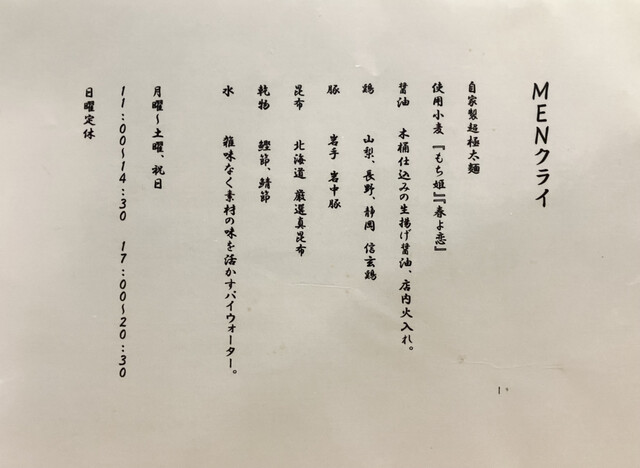 MENクライ
自家製超極太麺
使用小麦 『もち姫』『春よ恋』
醤油 木桶仕込みの生揚げ醤油、店内火入れ。
鶏 山梨、長野、静岡 信玄鶏
豚 岩手 岩中豚
昆布 北海道 厳選真昆布
乾物 鰹節、鯖節
水 雑味なく素材の味を活かす、パイウォーター。
月曜〜土曜、祝日
11:00〜14:30 17:00〜20:30
日曜定休